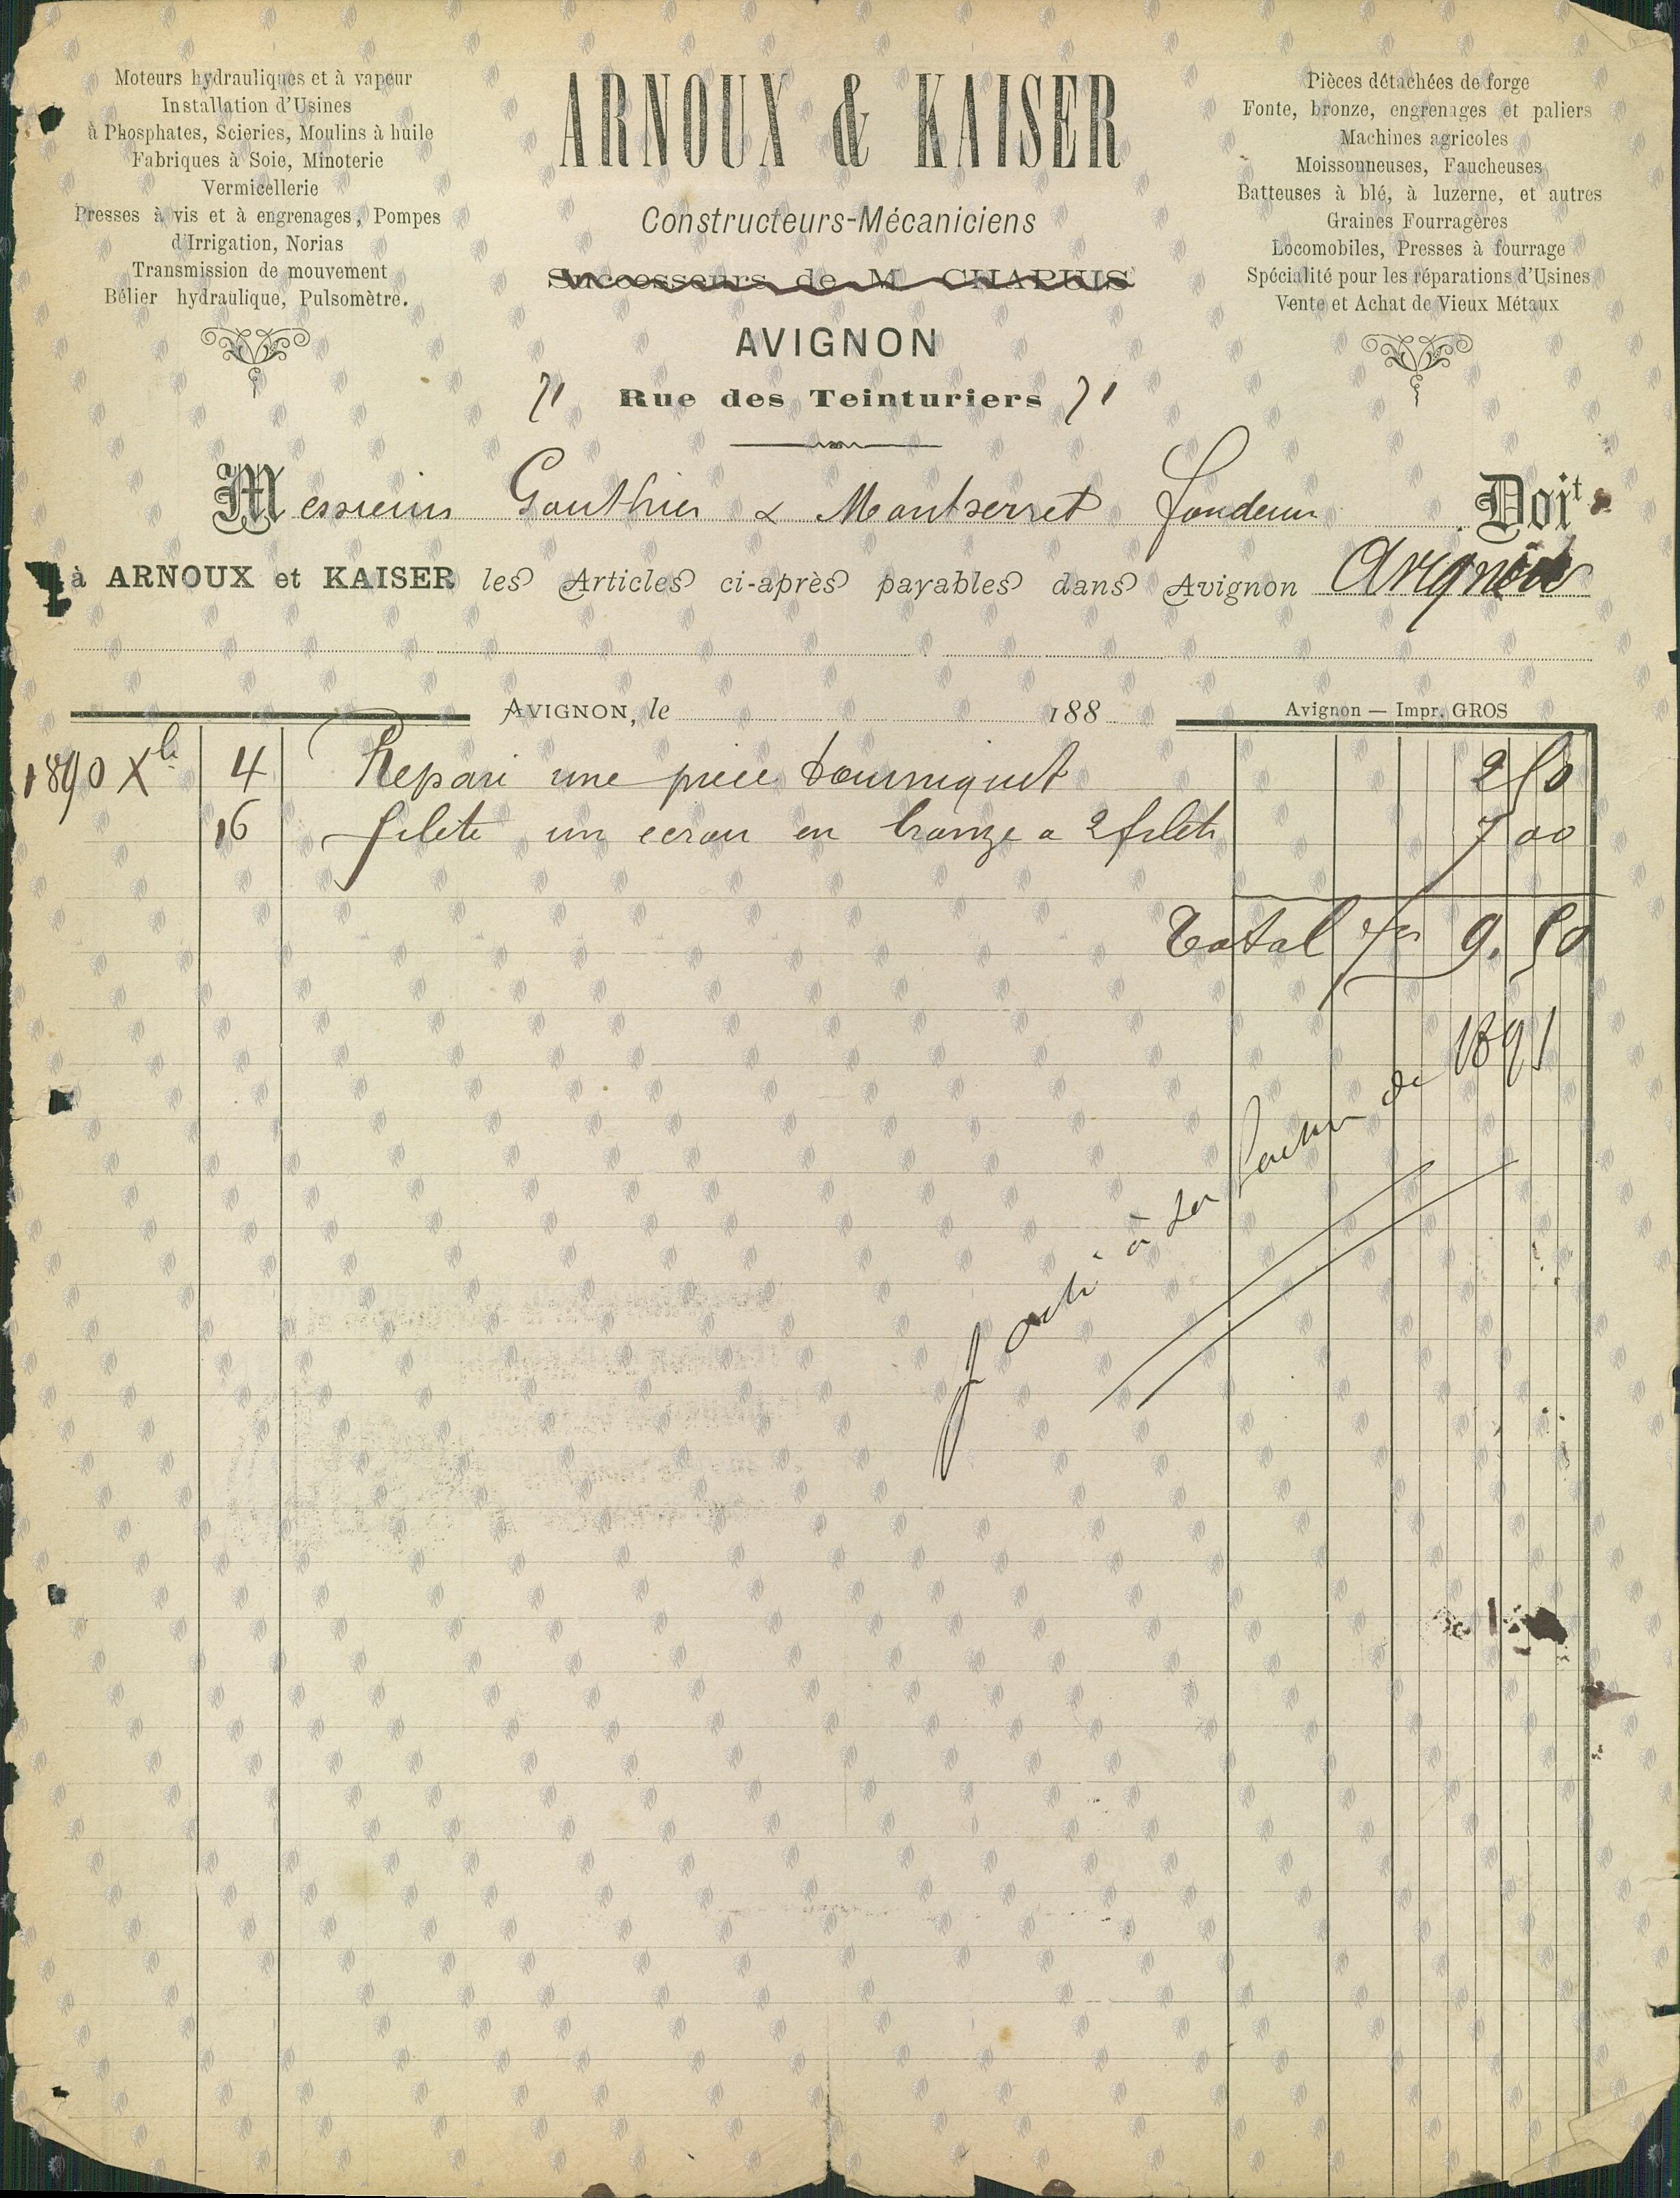 Moteurs hydrauliques et à vapeur
Installation d'Usines
à Phosphates, Scieries, Moulins à huile
Fabriques à Soie, Minoterie
Vermicellerie
Presses à vis et à engrenages, Pompes
d'Irrigation, Norias
Transmission de mouvement
Bélier hydraulique, Pulsomètre.
ARNOUX & KAISER
Constructeurs-Mécaniciens
Successeurs de M. CHAPUIS
AVIGNON
71 Rue des Teinturiers 71
Pièces détachées de forge
Fonte, bronze, engrenages et paliers
Machines agricoles
Moissonneuses, Faucheuses
Batteuses à blé, à luzerne, et autres
Graines Fourragères
Locomobiles, Presses à fourrage
Spécialité pour les réparations d'Usines
Vente et Achat de Vieux Métaux
Messieurs Gauthier & Montserret fondeurs Doit
à ARNOUX et KAISER les Articles ci-après payables dans Avignon Avignon
AVIGNON, le 188
Avignon — Impr. GROS
1890 Xbre 4 Reparé une piece tourniquet 2 50
16 fileté un ecrou en bronze a 2 filets 7 00
Total frs 9. 50
Jointe à la facture de 1891